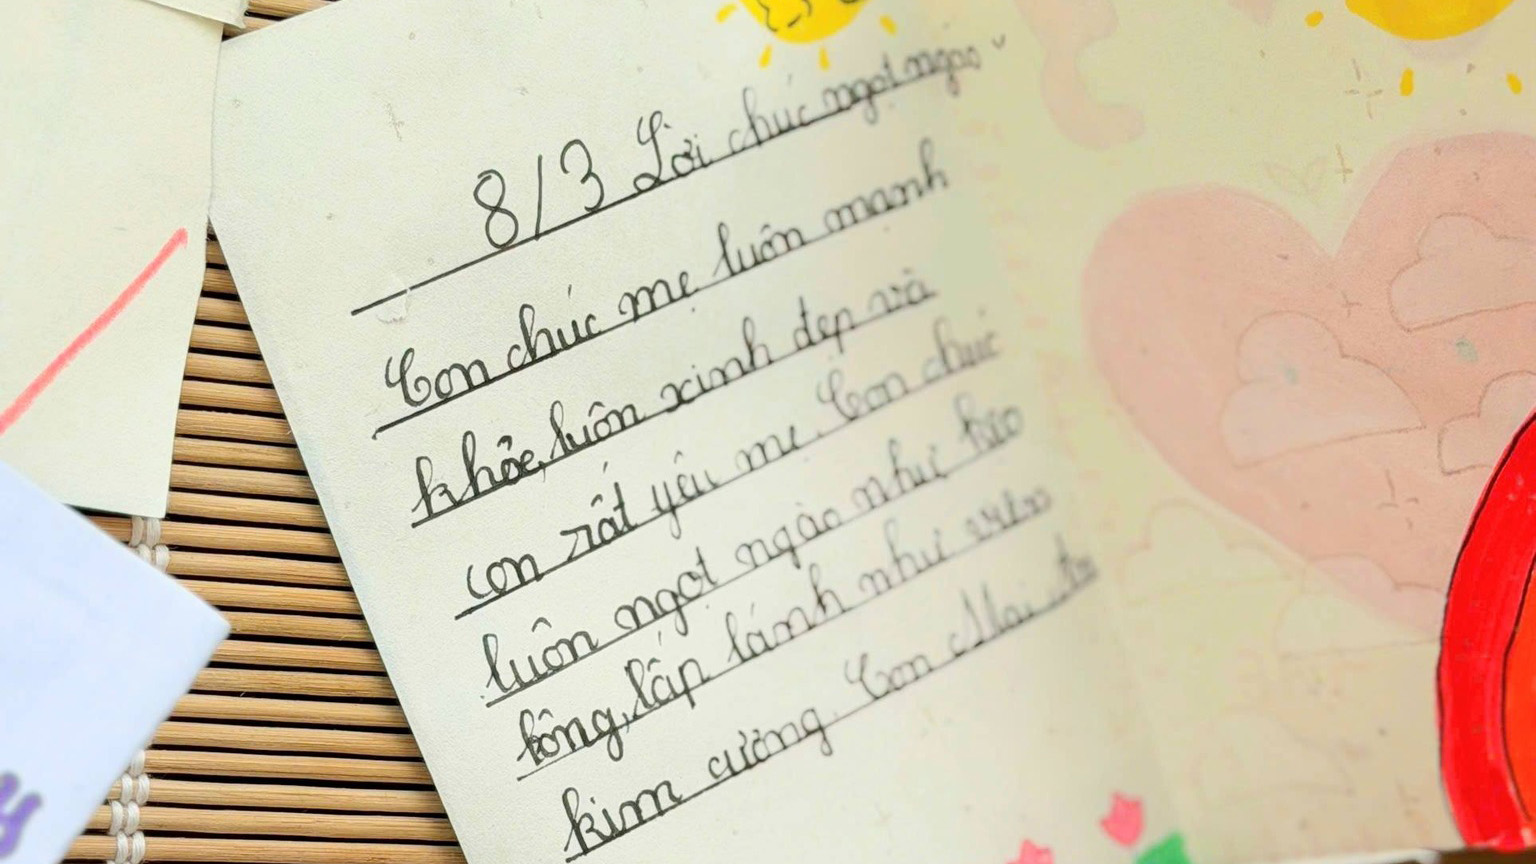 8/3 Lời chúc ngọt ngào
Con chúc mẹ luôn mạnh
khỏe, luôn xinh đẹp và
con rất yêu mẹ. Con chúc
luôn ngọt ngào như kẹo
bông, lấp lánh như viên
kim cương. Con Mai
y